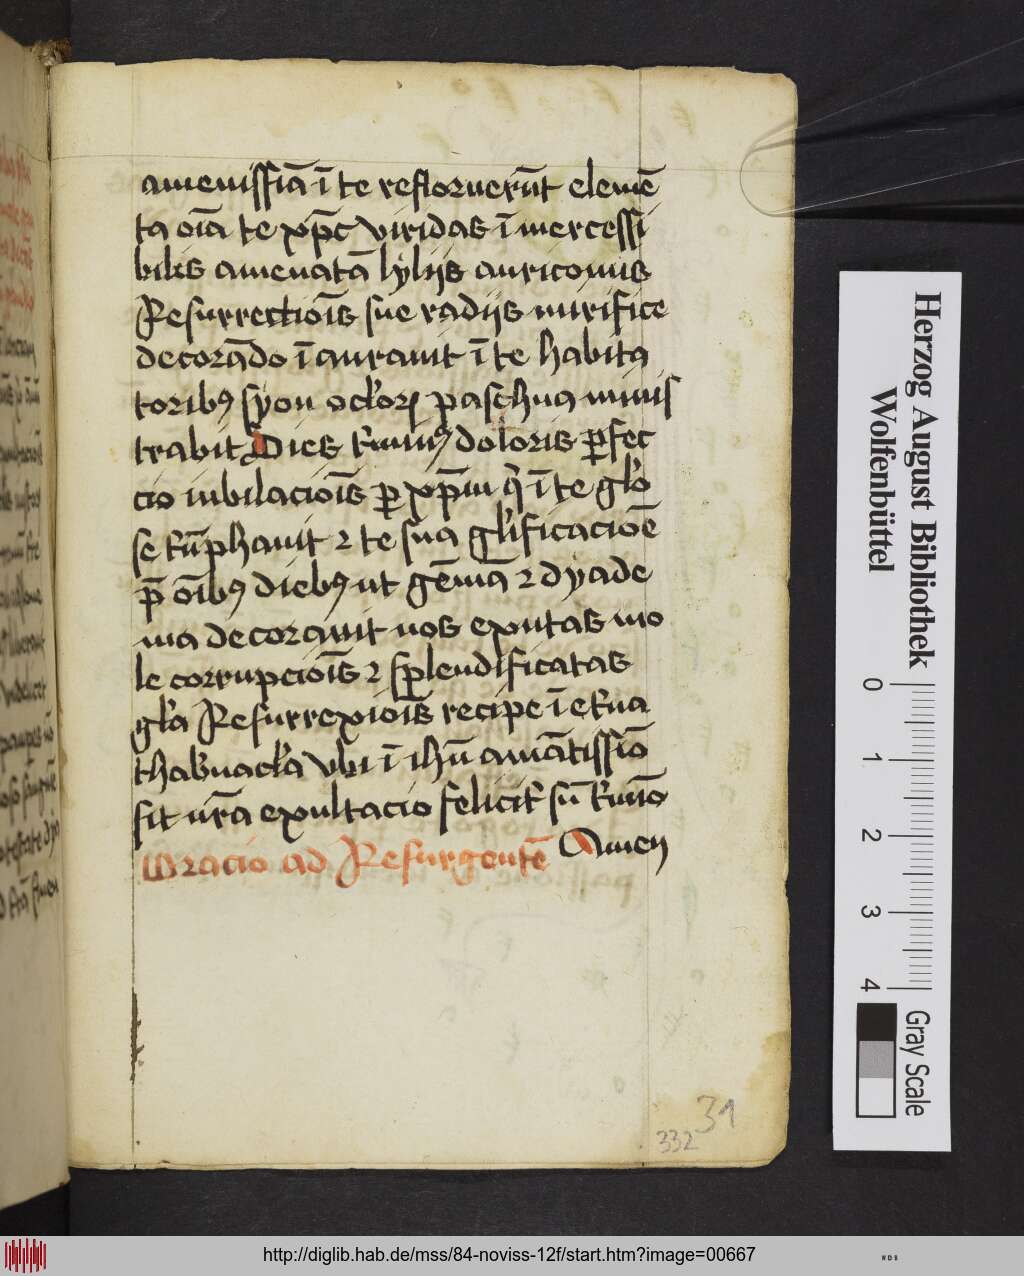 amenissīa ī te refloruerūt elemē
ta oīa te xp̄c viridas īmercessi
biles amenatā lylijs auricomis
Resurrectiōīs sue radijs mirifice
decorādo ī aurauit ī te habita
toribꝫ syon odor paschua minis
trabit Dies tminꝰ doloris ꝑfec
cio iubilacioīs ꝑ xp̄m q̄ ī te glo
se t'ūphauit ⁊ te sua glificacioē
p̄ oībꝫ diebꝫ ut gēma ⁊ dyade
ma decorauit nos exutas mo
le corrupcioīs ⁊ splendificatas
gl'a Resurrexioīs recipe ī et'na
thab'nacl'a vbi ī ihū amātissīo
sit nr̄a exultacio felicit' sn̄ t'mīo
Oracio ad Resurgentē Amen
31
332
Herzog August Bibliothek
Wolfenbüttel
0 1 2 3 4
Gray Scale
http://diglib.hab.de/mss/84-noviss-12f/start.htm?image=00667